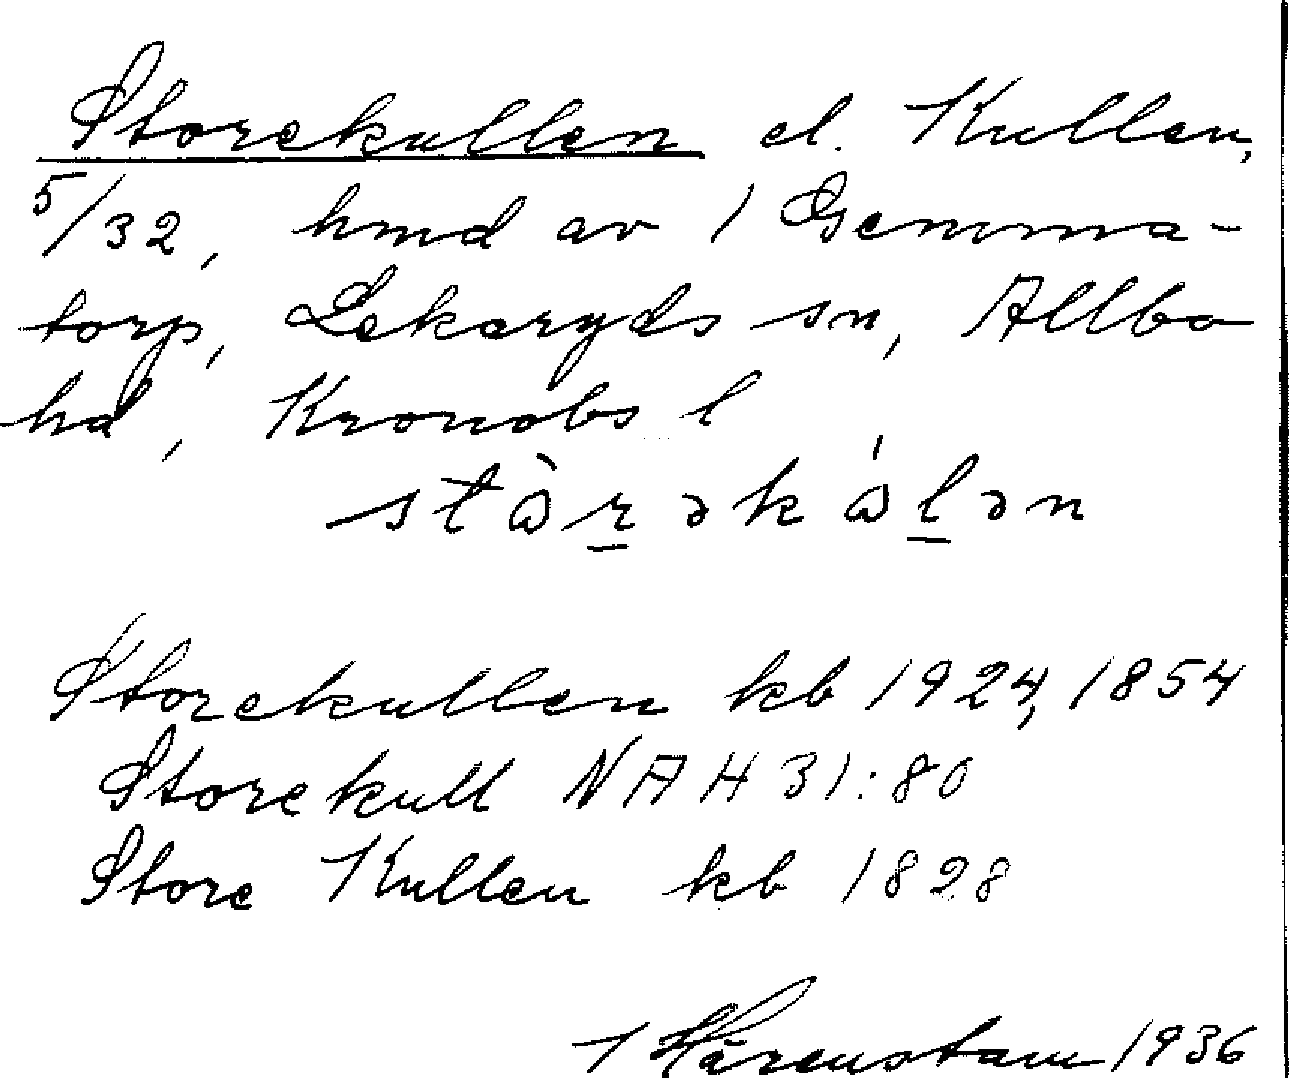 Storekullen el. Kullen,
5/32, hmd av 1 Gemma-
torp, Lekaryds sn, Allbo
hd, Kronobs l
stàrəkálən
Storekullen kb 1924, 1854
Storekull NAH 31:80
Store Kullen kb 1828
Härenstam 1936